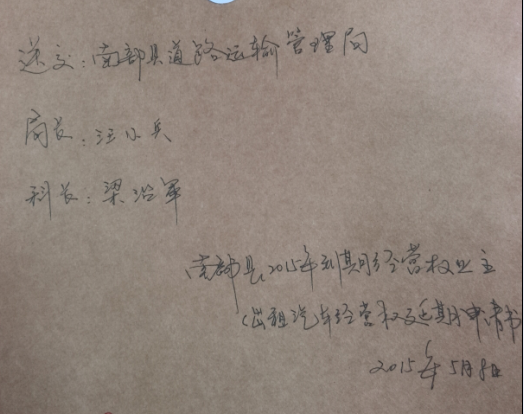 递交:南部县道路运输管理局
局长:汪小兵
科长:梁治军
南部县2015年到期经营权业主
(出租汽车经营权延期申请书
2015年5月8日